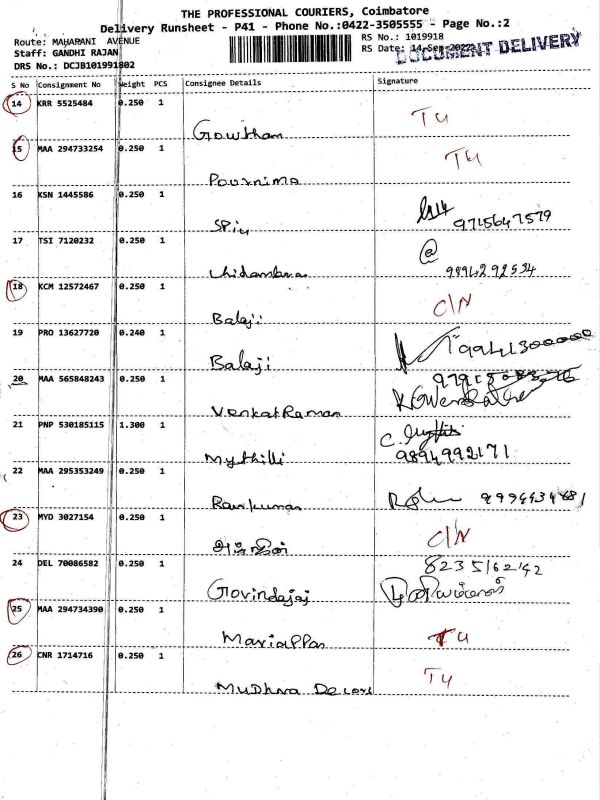 THE PROFESSIONAL COURIERS, Coimbatore
Delivery Runsheet - P41 - Phone No.:0422-3505555 - Page No.:2
Route: MAHARANI AVENUE
RS No.: 1019918
Staff: GANDHI RAJAN
RS Date: 14-Sep-2022
DOCUMENT DELIVERY
DRS No.: DCJB101991802
S No Consignment No Weight PCS Consignee Details Signature
14 KRR 5525484 0.250 1
Gowtham T4
15 MAA 294733254 0.250 1
Pournima T4
16 KSN 1445586 0.250 1
9715647579
17 TSI 7120232 0.250 1
@
Chidambaram 9894292534
18 KCM 12572467 0.250 1
Balaji C/N
19 PRO 13627720 0.240 1
Balaji
20 MAA 565848243 0.250 1
VenkatRaman
21 PNP 530185115 1.300 1
Mythilli 9894992171
22 MAA 295353249 0.250 1
Ravikumar
23 MYD 3027154 0.250 1
C/N
24 DEL 70086582 0.250 1
Govindaraj
25 MAA 294734390 0.250 1
Mariappan T4
26 CNR 1714716 0.250 1
Mudhra Decors T4